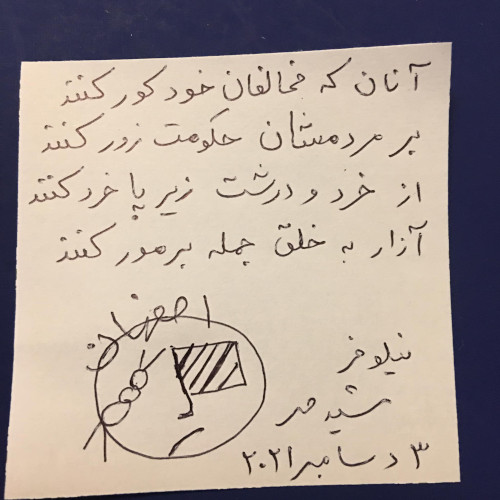 آنان که مخالفان خود کور کنند
بر مردمشان حکومت زور کنند
از خرد و درشت زیر پا خرد کنند
آزار به خلق جمله بر مور کنند
اصفهان
نیلوفر
شیدمهر
۳ دسامبر ۲۰۲۱